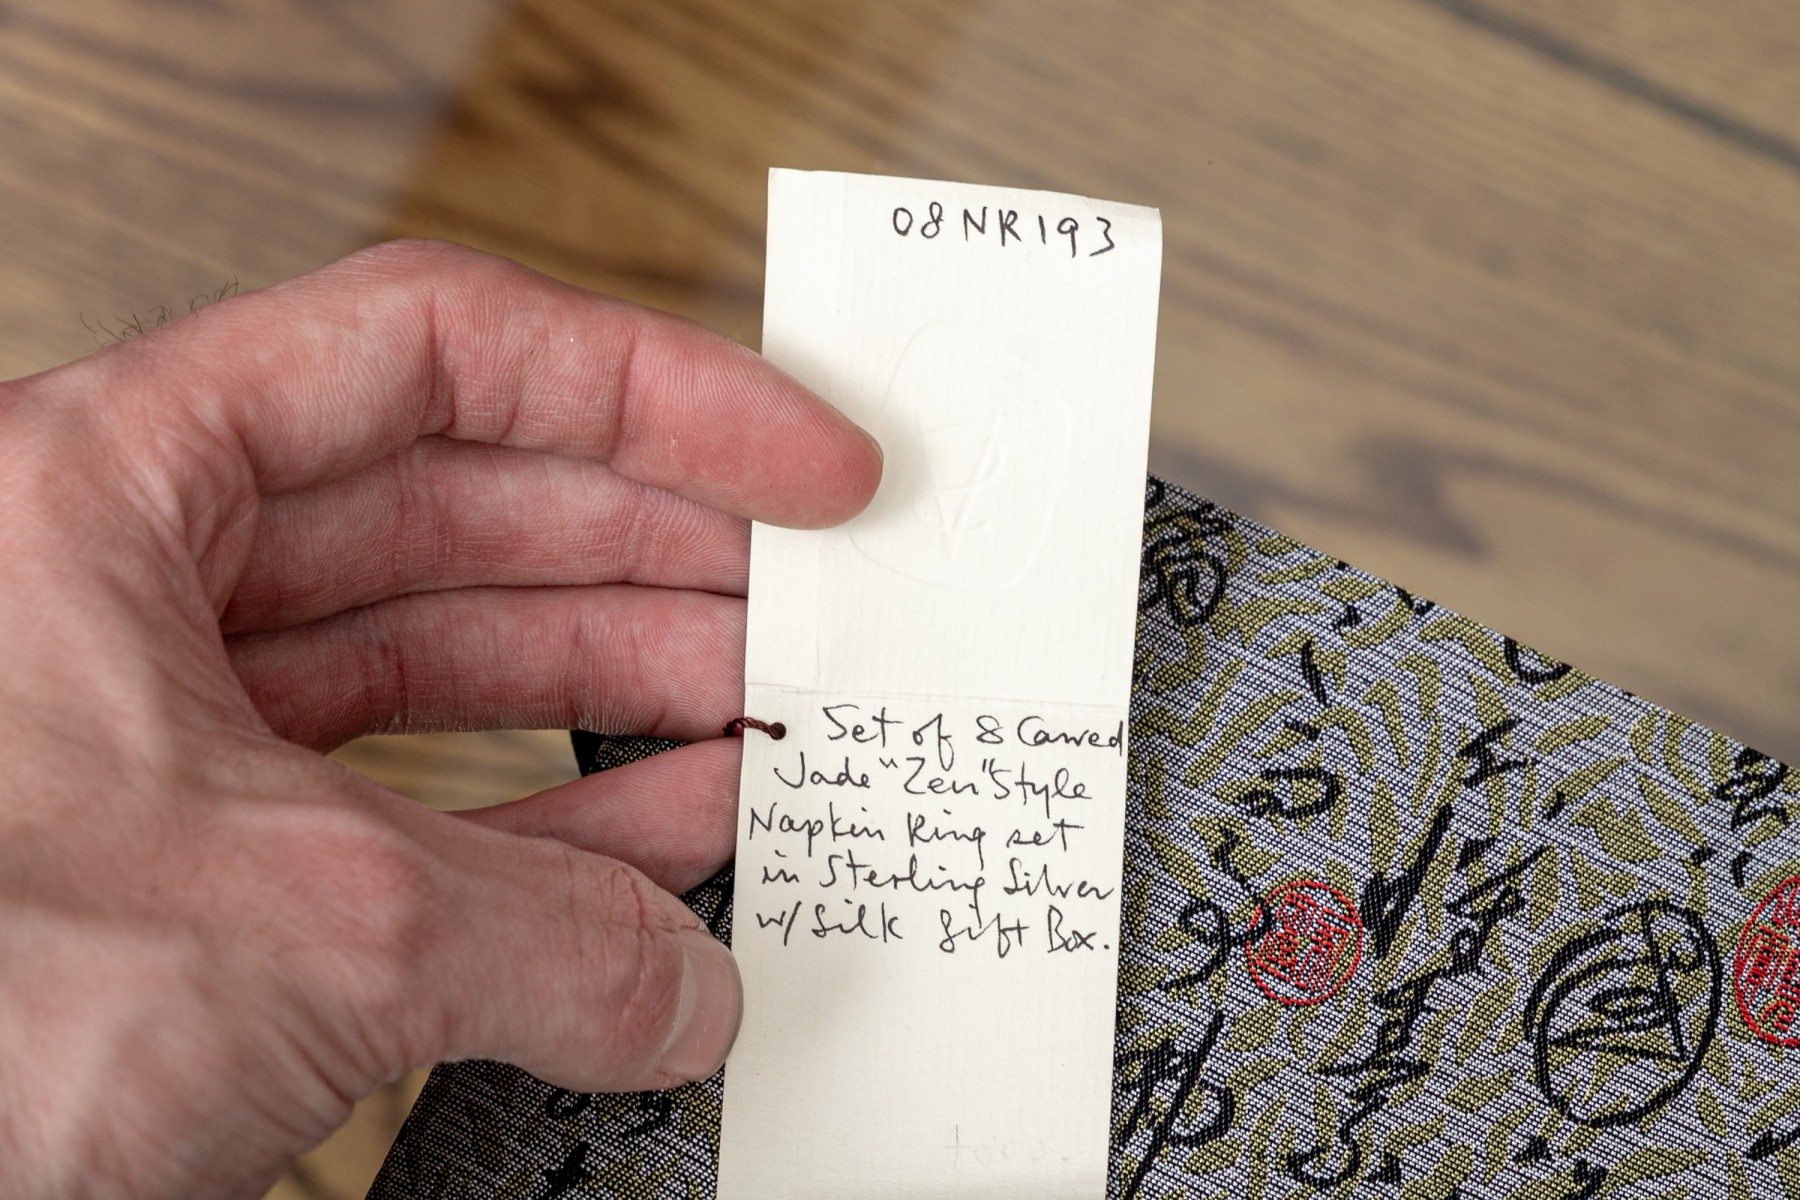 08NR193
Set of 8 Carved
Jade "Zen" Style
Napkin Ring set
in Sterling Silver
w/ Silk Gift Box.